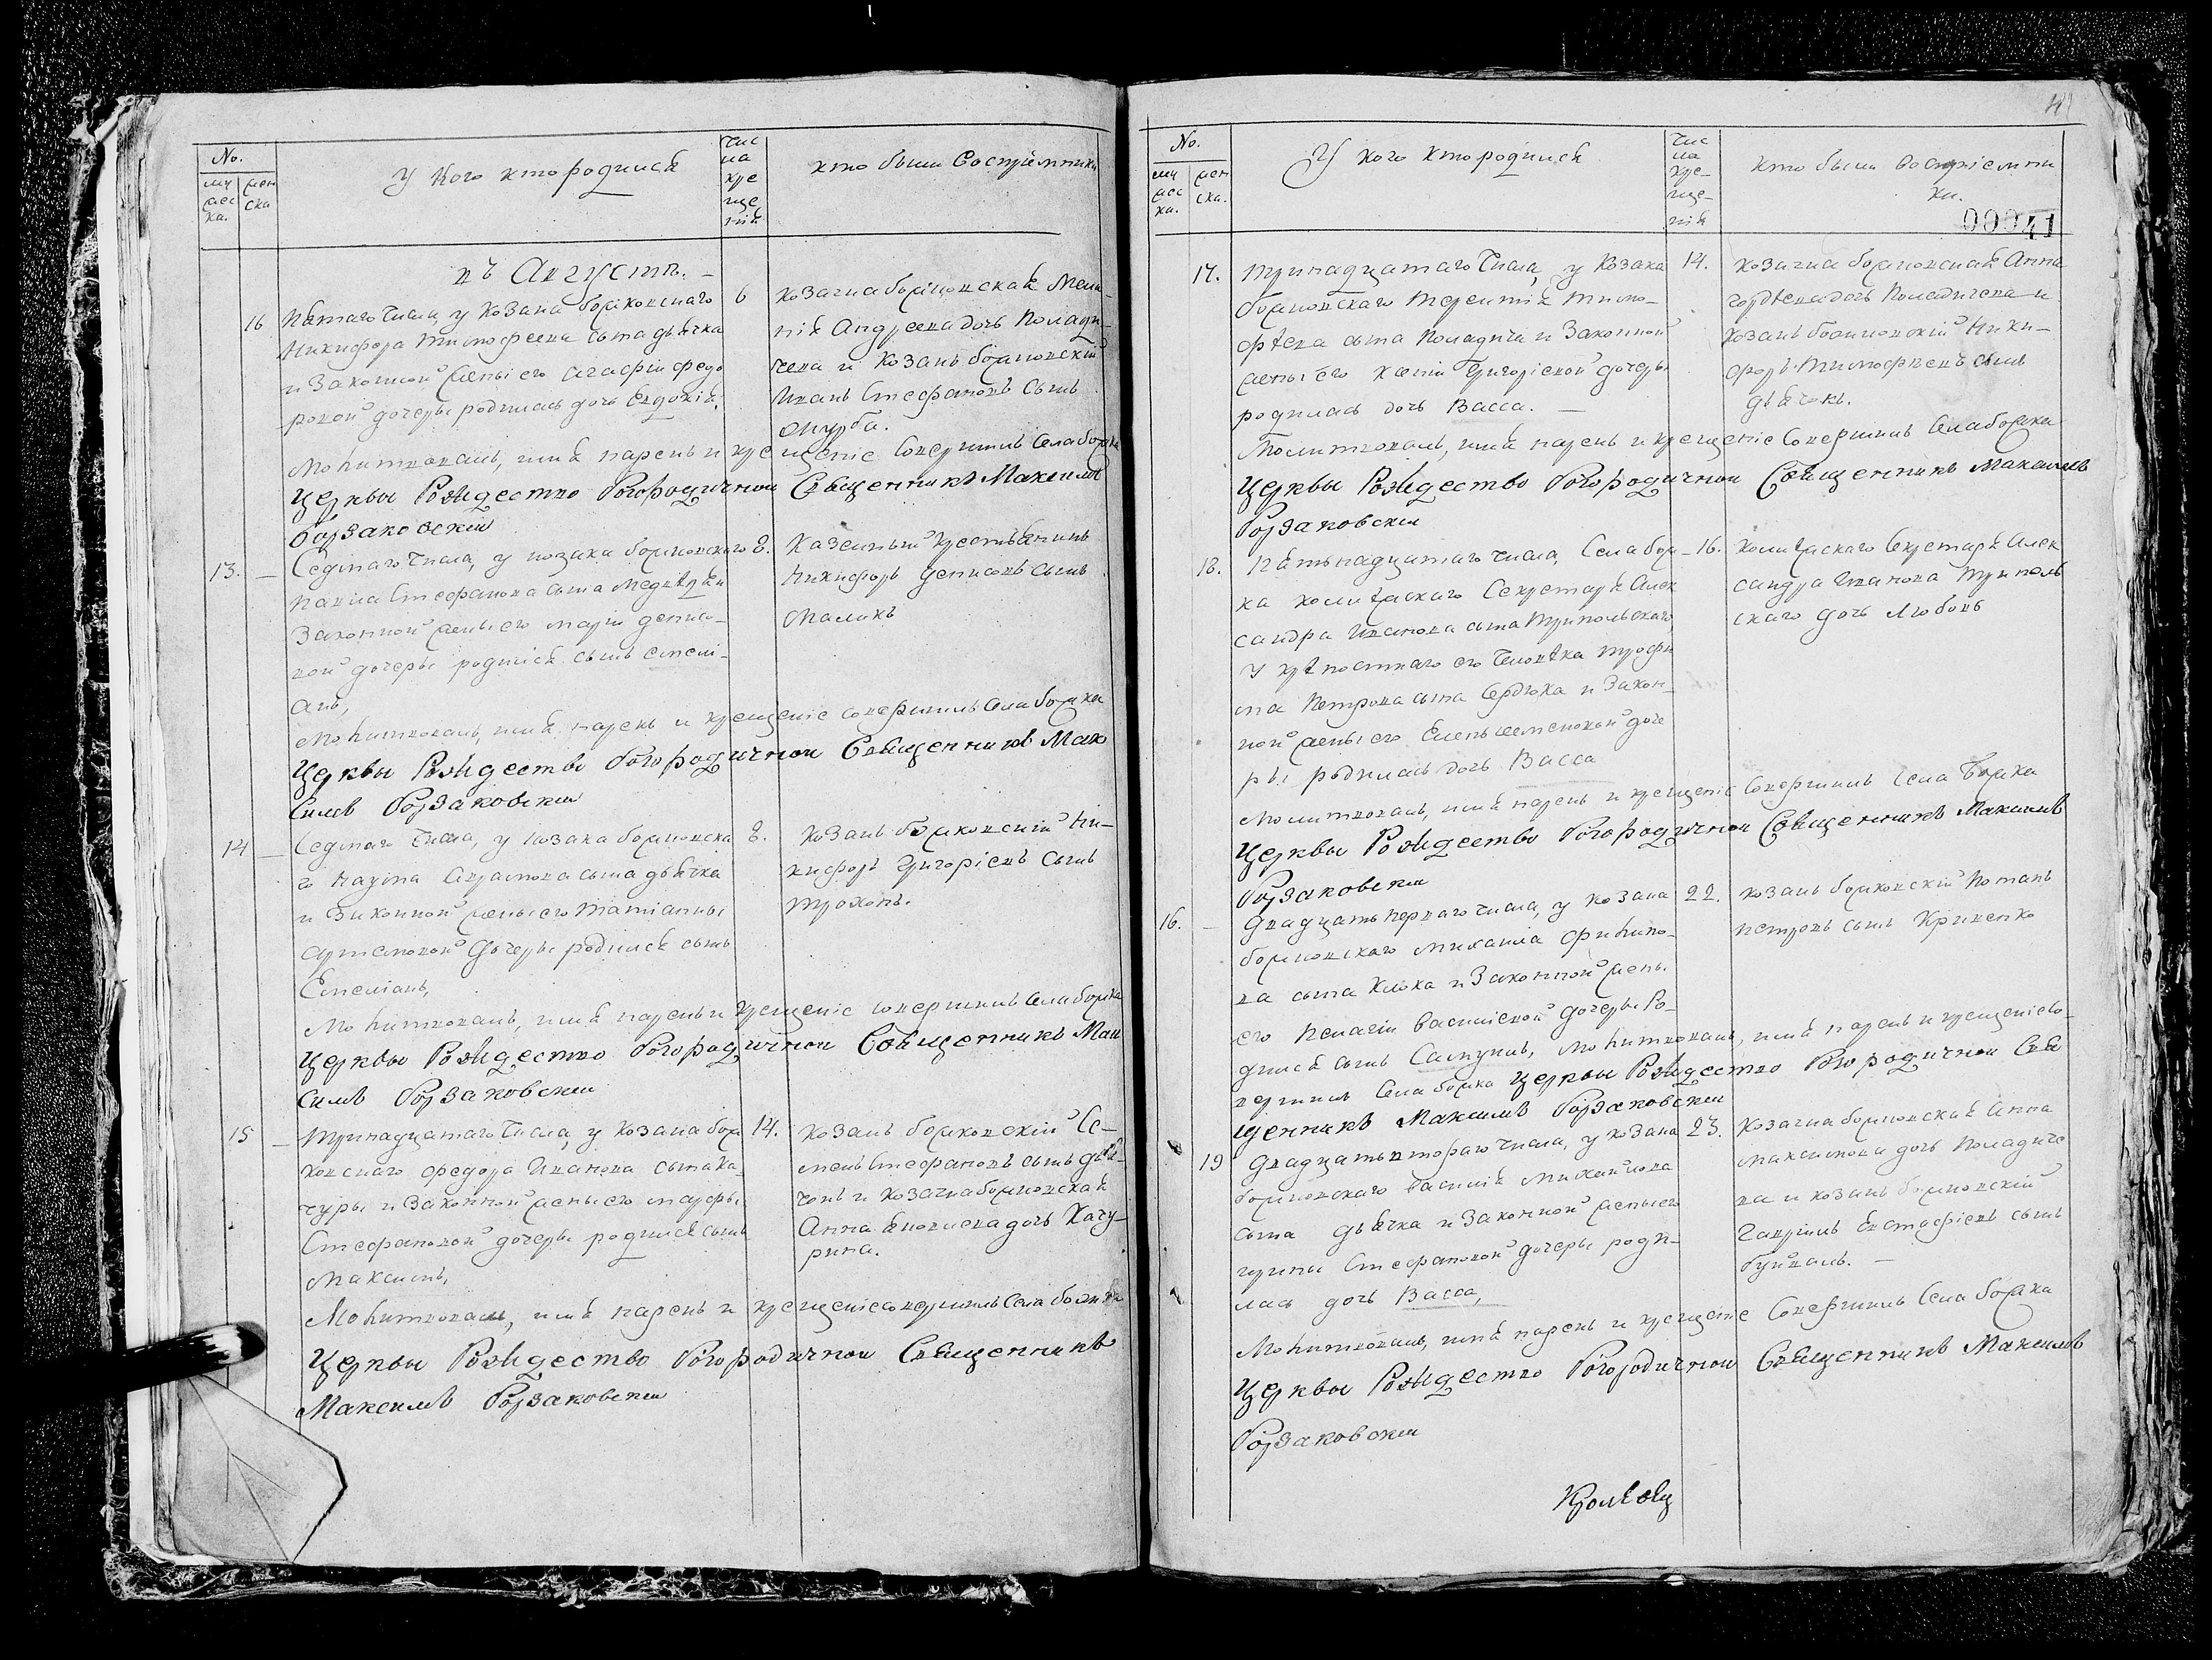 No.
му жес ка.
жен ска
У кого кто родился
Чис ла кре ще нія
кто были Воспріемники
въ Августѣ. –
16 Пятаго Числа у Козака божковскаго 6
Никифора Тимофеева сына дьячка
и Законной жены его Агафіи федо
ровой дочеры родилась дочь Евдокія,
козачка божковская Мела-
нія Андреева дочь Поладу-
чева и козакъ божковскій
Иванъ Стефановъ сынъ
Молитвовалъ, имя нарекъ и крещеніе Совершилъ Села божка
Церквы Рождество Богородичной Священникъ Максимъ
Борзаковскій
13. – Седмаго Числа, у козака божковскаго 8.
павла Стефанова сына Медведя и
Законной жены его Маріи дениso-
вой дочеры родился сынъ Емели-
анъ,
Казенный крестьянинъ
Никифоръ денисовъ сынъ
Маликъ
Молитвовалъ, имя нарекъ и крещеніе совершилъ Села божка
Церквы Рождество Богородичной Священникъ Мак
Симъ Борзаковскій
14 – Седмаго Числа, у козака божковска 8.
го Наума Аврамова сына дьячка
и Законной жены его Татіанны
Артемовой дочеры родился сынъ
Емеліанъ,
козакъ божковскій Ни-
кифоръ Григоріевъ сынъ
трохопъ.
Молитвовалъ, имя нарекъ и крещеніе совершилъ Села божка
Церквы Рождество Богородичной Священникъ Мак
Симъ Борзаковскій
15 – Тринадцатаго Числа, у козака бож 14.
ковскаго федора Иванова сына ка-
чуры и Законной жены его марфы
Стефановой дочеры родился сынъ
Максимъ,
козакъ божковскій Се-
менъ Стефановъ сынъ дья-
чокъ и козачка божковская
Анна дочь Качу-
рина.
Молитвовалъ, имя нарекъ и крещеніе совершилъ Села божка
Церквы Рождество Богородичной Священникъ
Максимъ Борзаковскій
41
No.
му жес ка.
жен ска.
У кого кто родился
Чис ла кре- ще- нія
кто были Воспріемни
ки.
00041
17. Тринадцатаго Числа, у Козака 14.
божковскаго Терентія Тимо-
фѣева сына Поладича и Законной
жены его Ксеніи Григоріевой дочеры
родилась дочь Васса. –
козачка божковская Анна
гордѣева дочь Поладичева и
козакъ божковскій Ники-
форъ Тимофѣевъ сынъ
дьячокъ.
Молитвовалъ, имя нарекъ и крещеніе Совершилъ Села божка
Церквы Рождество Богородичной Священникъ Максимъ
Борзаковскій
18. Пятьнадцатаго числа, Села бож – 16.
ка колѣжскаго Секретаря Алек
сандра Иванова сына Трипольскаго,
У крѣпостнаго его Человѣка трофи
ма Петрова сына Сердюка и Закон-
ной жены его Елены Семеновой доче
ры родилась дочь Васса
колѣжскаго Секретаря Алек
сандра Иванова Триполь
скаго дочь Любовь
Молитвовалъ, имя нарекъ и крещеніе Совершилъ Села Божка
Церквы Рождество Богородичной Священникъ Максимъ
Борзаковскій
16. – Двадцать перваго числа, у козака 22.
божковскаго михаила филипо-
ва сына Клюка и Законной жены
его Пелагіи Василіевой дочеры Ро-
дился сынъ Самуилъ, Молитвовалъ, имя нарекъ и крещеніе Со-
вершилъ Села божка Церквы Рождество Богородичной Свя
щенникъ Максимъ Борзаковскій
козакъ божковскій Потапъ
петровъ сынъ Кривенко
19 Двадцать втораго числа, у козака 23.
божковскаго Василія Михайлова
сына дьячка и Законной жены его
ирины Стефановой дочеры роди-
лась дочь Васса,
козачка божковская Анна
Максимова дочь Поладиче
ва и козакъ божковскій
Гавріилъ Евстафіевъ сынъ
буйвалъ. –
Молитвовалъ, имя нарекъ и крещеніе Совершилъ Села божка
Церквы Рождество Богородичной Священникъ Максимъ
Борзаковскій